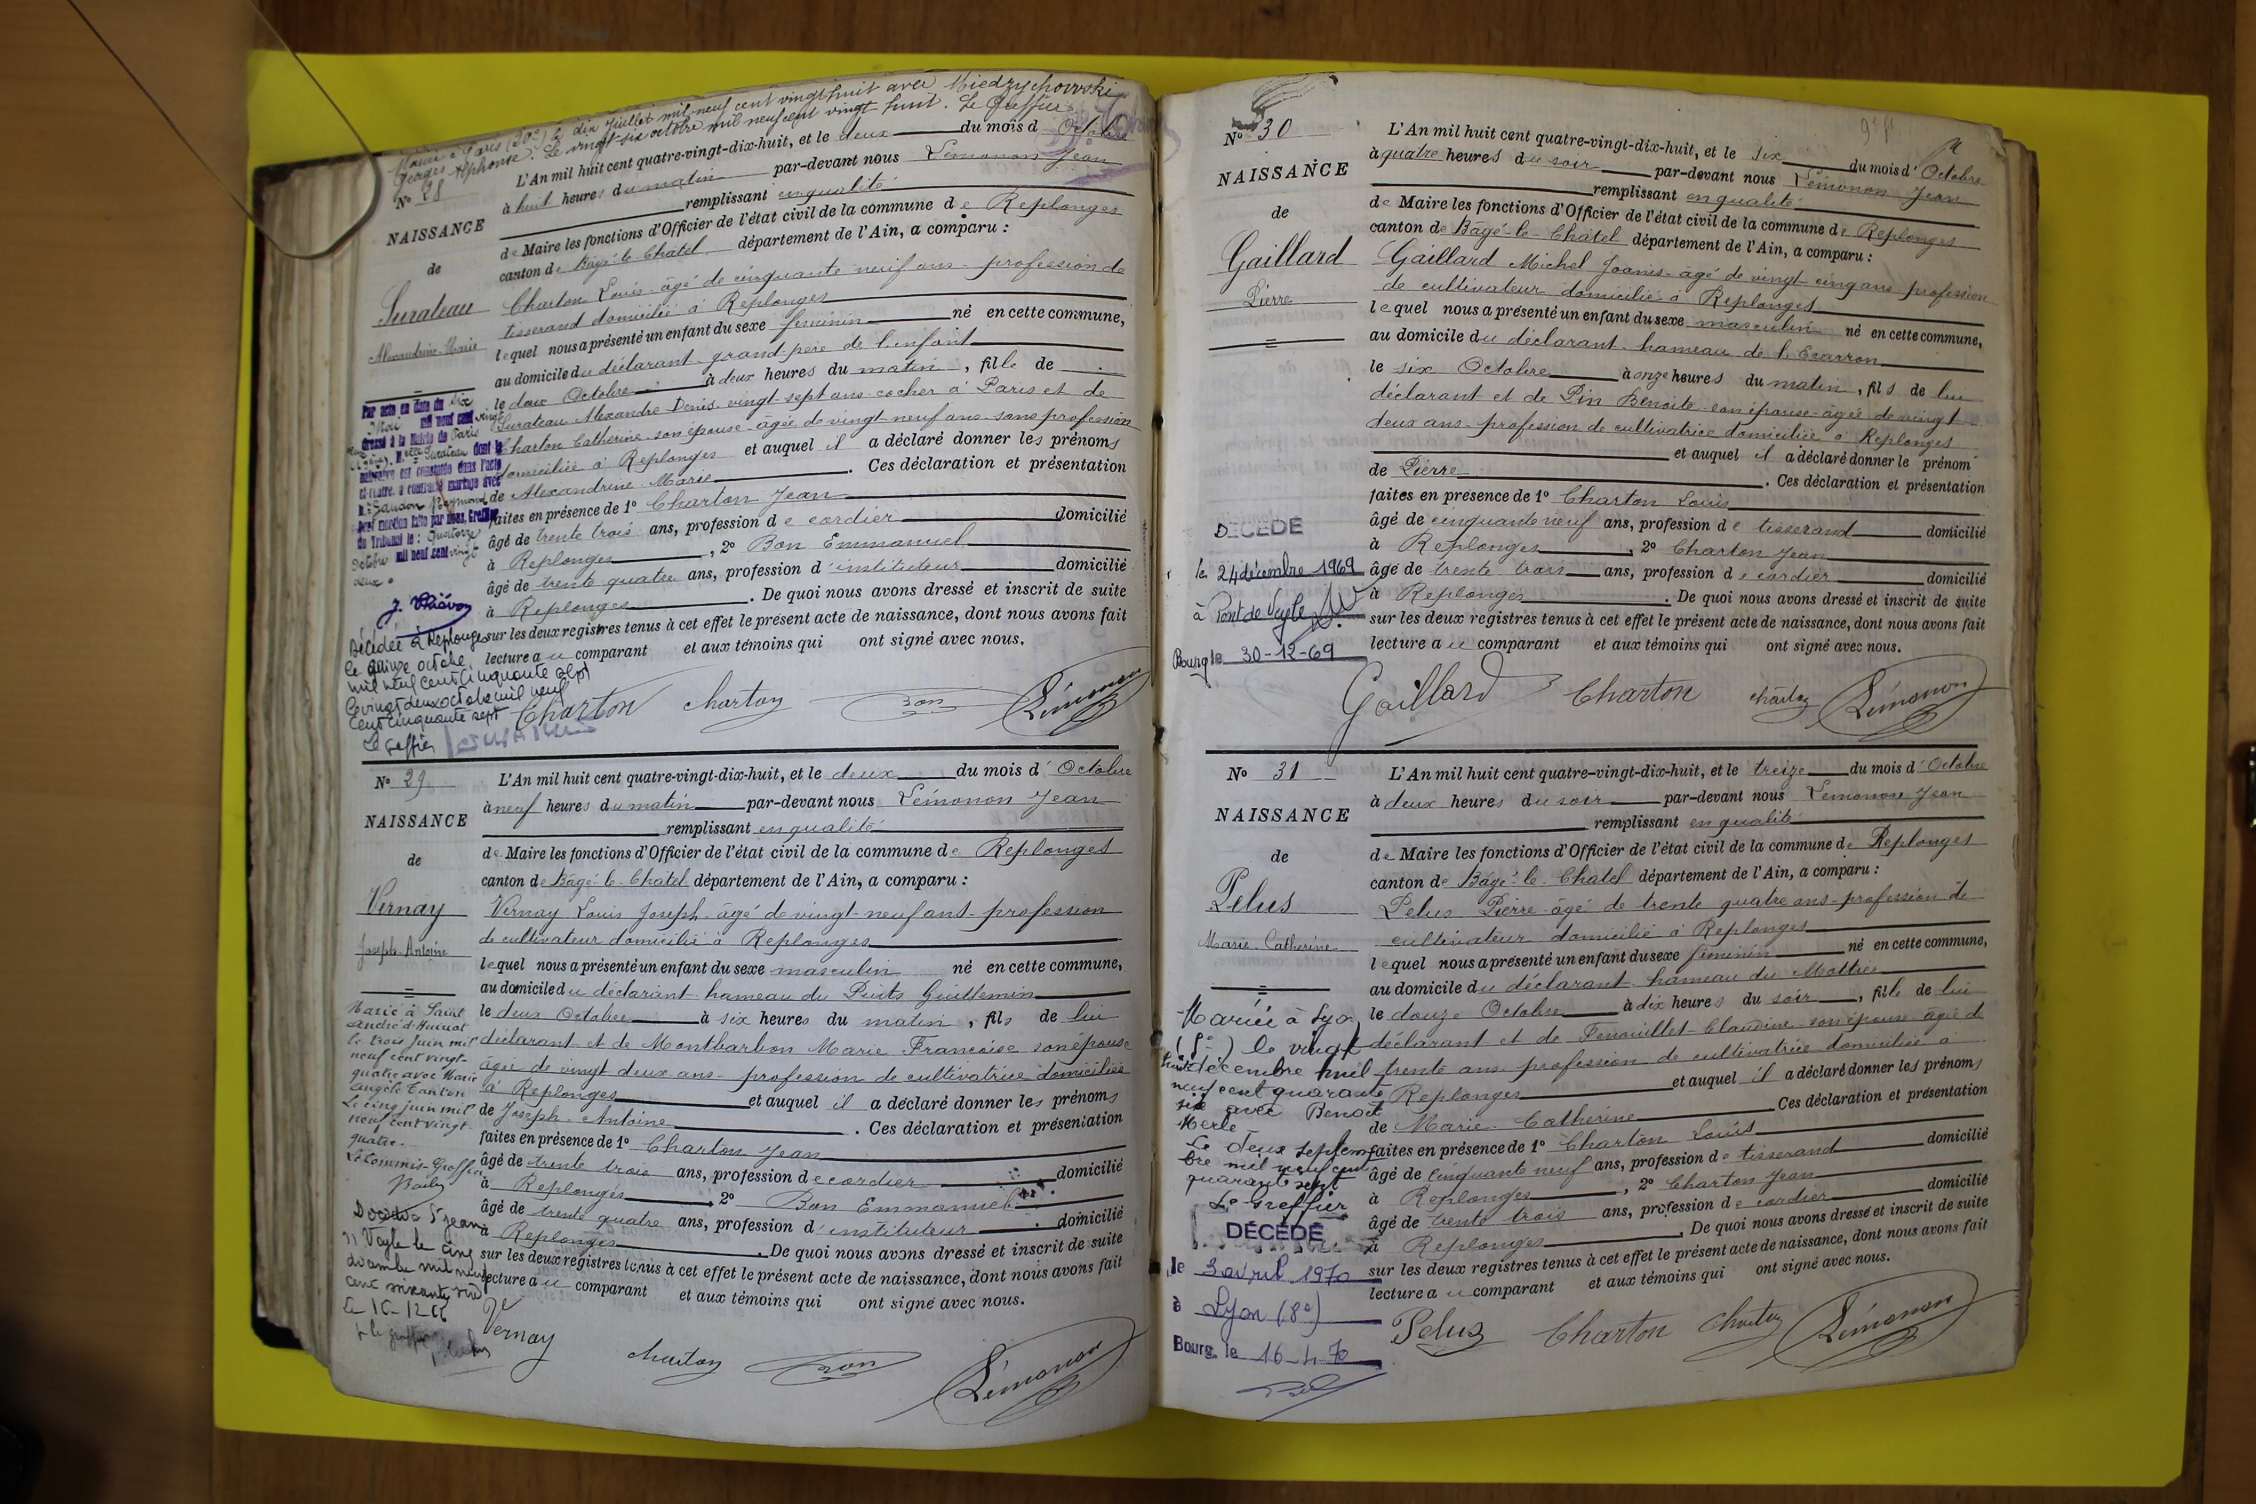 Marié à Paris (20e) le dix Juillet mil neuf cent vingt huit avec Miedzychowski
Georges Alphonse. Le vingt-six octobre mil neuf cent vingt huit. Le Greffier
N° 28
NAISSANCE
de
Surateau
Alexandrine-Marie
L'An mil huit cent quatre-vingt-dix-huit, et le deux du mois d'Octobre
à huit heures du matin par-devant nous Lémonon Jean
remplissant en qualité
de Maire les fonctions d'Officier de l'état civil de la commune de Replonges
canton de Bâgé-le-Chatel département de l'Ain, a comparu :
Charton Louis âgé de cinquante neuf ans profession de
tisserand domicilié à Replonges
lequel nous a présenté un enfant du sexe féminin né en cette commune,
au domicile du déclarant grand-père de l'enfant
le deux Octobre à deux heures du matin, fille de
Surateau Alexandre Denis vingt sept ans cocher à Paris et de
Charton Catherine son épouse âgée de vingt neuf ans sans profession
domiciliée à Replonges et auquel il a déclaré donner les prénoms
de Alexandrine Marie. Ces déclaration et présentation
faites en présence de 1° Charton Jean
âgé de trente trois ans, profession de cordier domicilié
à Replonges, 2° Bon Emmanuel
âgé de trente quatre ans, profession d'instituteur domicilié
à Replonges. De quoi nous avons dressé et inscrit de suite
sur les deux registres tenus à cet effet le présent acte de naissance, dont nous avons fait
lecture au comparant et aux témoins qui ont signé avec nous.
Charton Charton Bon Lémonon
Par acte en date du six
Mai mil neuf cent vingt
dressé à la Mairie de Paris
Surateau dont la
naissance est constatée dans l'acte
ci-contre, a contracté mariage avec
Raymond
Bref mention faite par nous, Greffier
du Tribunal le : Quatorze
Octobre mil neuf cent vingt
deux.
Décédée à Replonges
le quinze octobre
mil neuf cent cinquante sept
Le vingt deux octobre mil neuf
cent cinquante sept
Le Greffier
N° 29
NAISSANCE
de
Vernay
Joseph-Antoine
L'An mil huit cent quatre-vingt-dix-huit, et le deux du mois d'Octobre
à neuf heures du matin par-devant nous Lémonon Jean
remplissant en qualité
de Maire les fonctions d'Officier de l'état civil de la commune de Replonges
canton de Bâgé-le-Chatel département de l'Ain, a comparu :
Vernay Louis Joseph âgé de vingt-neuf ans profession
de cultivateur domicilié à Replonges
lequel nous a présenté un enfant du sexe masculin né en cette commune,
au domicile du déclarant hameau du Puits Guillemin
le deux Octobre à six heures du matin, fils de lui
déclarant et de Montbarbon Marie Françoise son épouse
âgée de vingt deux ans profession de cultivatrice domiciliée
à Replonges et auquel il a déclaré donner les prénoms
de Joseph-Antoine. Ces déclaration et présentation
faites en présence de 1° Charton Jean
âgé de trente trois ans, profession de cordier domicilié
à Replonges 2° Bon Emmanuel
âgé de trente quatre ans, profession d'instituteur domicilié
à Replonges. De quoi nous avons dressé et inscrit de suite
sur les deux registres tenus à cet effet le présent acte de naissance, dont nous avons fait
lecture au comparant et aux témoins qui ont signé avec nous.
Vernay Charton Bon Lémonon
Marié à Saint
André d'Huiriat
le trois Juin mil
neuf cent vingt-
quatre avec Marie
Angèle Tanton
Le cinq juin mil
neuf cent vingt-
quatre.
Le Commis-Greffier
Décédé à St Jean
s/ Veyle le cinq
décembre mil neuf
cent soixante six
Le 16-12-66
p le greffier
N° 30
NAISSANCE
de
Gaillard
Pierre
L'An mil huit cent quatre-vingt-dix-huit, et le six du mois d'Octobre
à quatre heures du soir par-devant nous Lémonon Jean
remplissant en qualité
de Maire les fonctions d'Officier de l'état civil de la commune de Replonges
canton de Bâgé-le-Châtel département de l'Ain, a comparu :
Gaillard Michel Joanis âgé de vingt-cinq ans profession
de cultivateur domicilié à Replonges
lequel nous a présenté un enfant du sexe masculin né en cette commune,
au domicile du déclarant hameau de l'Ecarron
le six Octobre à onze heures du matin, fils de lui
déclarant et de Pin Benoite son épouse âgée de vingt
deux ans profession de cultivatrice domiciliée à Replonges
et auquel il a déclaré donner le prénom
de Pierre. Ces déclaration et présentation
faites en présence de 1° Charton Louis
âgé de cinquante neuf ans, profession de tisserand domicilié
à Replonges, 2° Charton Jean
âgé de trente trois ans, profession de cordier domicilié
à Replonges. De quoi nous avons dressé et inscrit de suite
sur les deux registres tenus à cet effet le présent acte de naissance, dont nous avons fait
lecture au comparant et aux témoins qui ont signé avec nous.
Gaillard Charton Charton Lémonon
DÉCÉDÉ
le 24 décembre 1969
à Pont de Veyle
Bourg le 30-12-69
N° 31
NAISSANCE
de
Pelus
Marie-Catherine
L'An mil huit cent quatre-vingt-dix-huit, et le treize du mois d'Octobre
à deux heures du soir par-devant nous Lémonon Jean
remplissant en qualité
de Maire les fonctions d'Officier de l'état civil de la commune de Replonges
canton de Bâgé-le-Chatel département de l'Ain, a comparu :
Pelus Pierre âgé de trente quatre ans profession de
cultivateur domicilié à Replonges
lequel nous a présenté un enfant du sexe féminin né en cette commune,
au domicile du déclarant hameau du Mottier
le douze Octobre à dix heures du soir, fille de lui
déclarant et de Fenouillet Claudine son épouse âgée de
trente ans profession de cultivatrice domiciliée à
Replonges et auquel il a déclaré donner les prénoms
de Marie-Catherine Ces déclaration et présentation
faites en présence de 1° Charton Louis
âgé de cinquante neuf ans, profession de tisserand domicilié
à Replonges, 2° Charton Jean
âgé de trente trois ans, profession de cordier domicilié
à Replonges. De quoi nous avons dressé et inscrit de suite
sur les deux registres tenus à cet effet le présent acte de naissance, dont nous avons fait
lecture au comparant et aux témoins qui ont signé avec nous.
Pelus Charton Charton Lémonon
Mariée à Lyon
(8e) le vingt
huit décembre mil
neuf cent quarante
six avec Benoit
Merle
Le deux septem-
bre mil neuf cent
quarante sept
Le Greffier
DÉCÉDÉ
le 3 avril 1970
à Lyon (8e)
Bourg, le 16-4-70